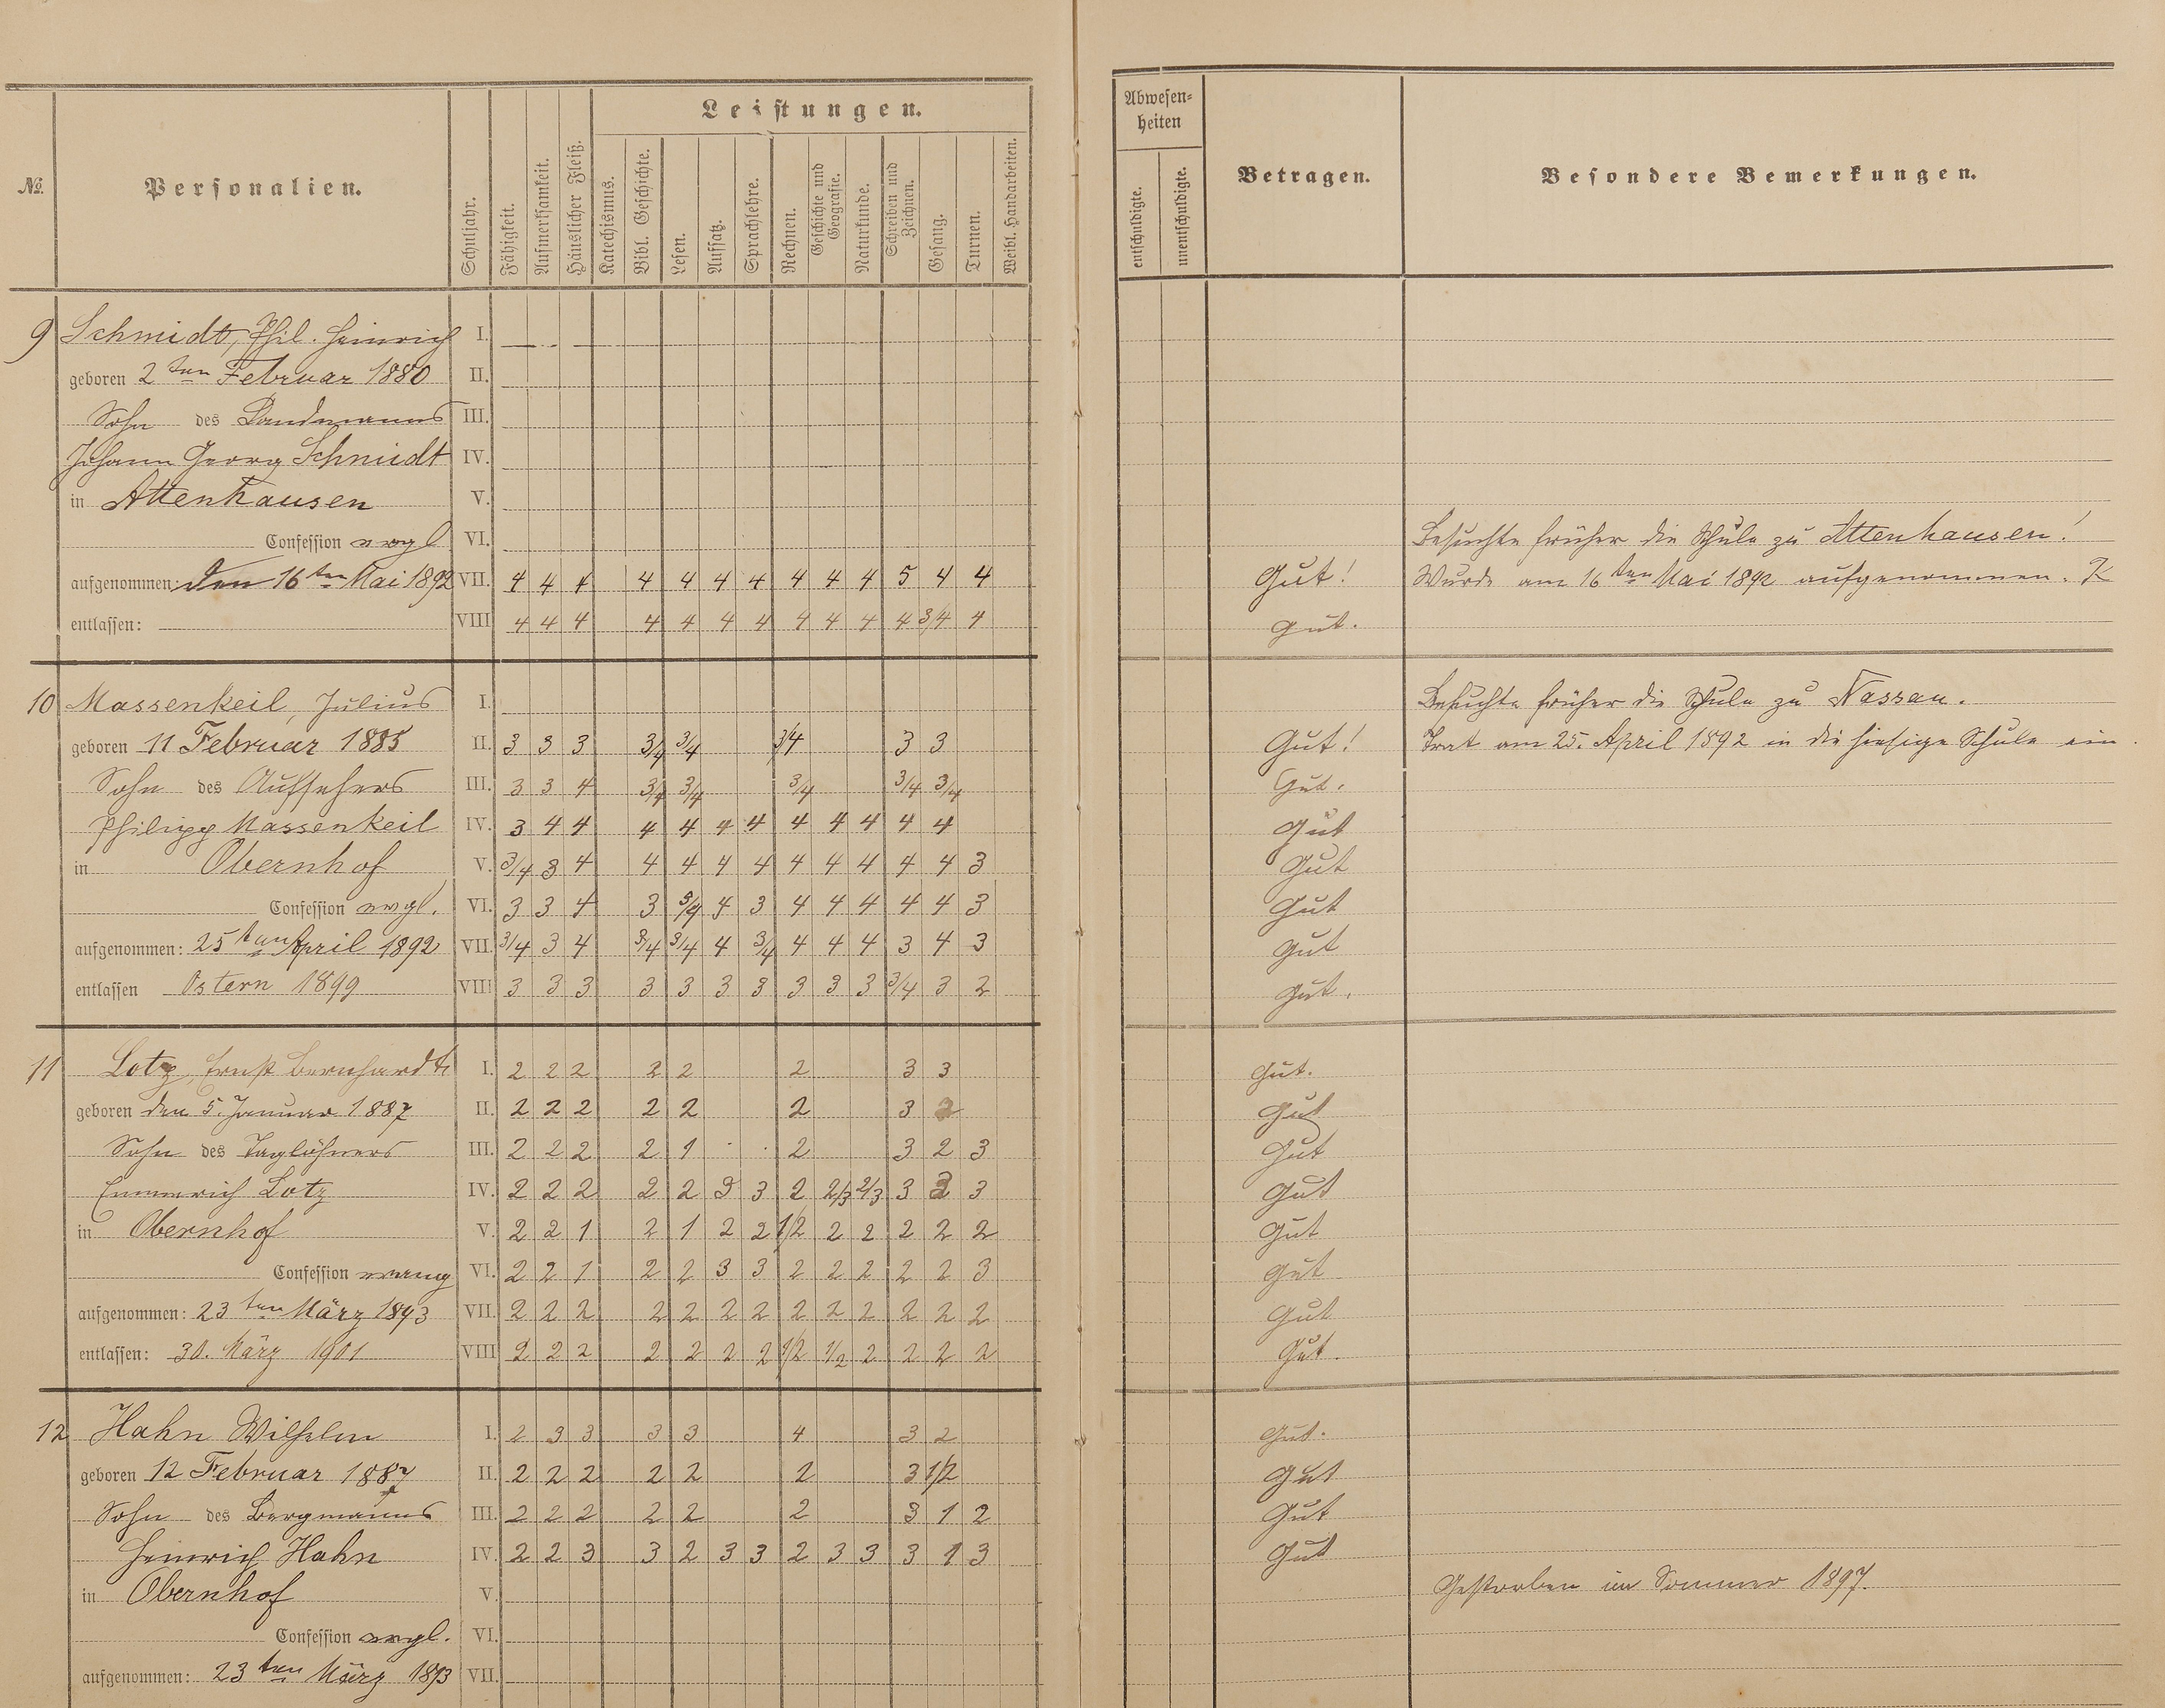 Leistungen.
Abwesen-
heiten
№.
Personalien.
Schuljahr.
Fähigkeit.
Aufmerksamkeit.
Häuslicher Fleiß.
Katechismus.
Bibl. Geschichte.
Lesen.
Aufsatz.
Sprachlehre.
Rechnen.
Geschichte und
Geografie.
Naturkunde.
Schreiben und
Zeichnen.
Gesang.
Turnen.
Weibl. Handarbeiten.
entschuldigte.
unentschuldigte.
Betragen.
Besondere Bemerkungen.
9 Schmidt, Phil. Heinrich I.
geboren 2ten Februar 1880 II.
Sohn des Landmanns III.
Johann Georg Schmidt IV.
in Attenhausen V.
Confession evgl. VI. Besuchte früher die Schule zu Attenhausen!
aufgenommen: den 16ten Mai 1892 VII. 4 4 4 4 4 4 4 4 4 4 5 4 4 Gut! Wurde am 16ten Mai 1892 aufgenommen.
entlassen: VIII 4 4 4 4 4 4 4 4 4 4 4 3/4 4 gut.
10 Massenkeil, Julius I. Besuchte früher die Schule zu Nassau.
geboren 11 Februar 1885 II. 3 3 3 3/4 3/4 3/4 3 3 Gut! Trat am 25. April 1892 in die hiesige Schule ein.
Sohn des Aufsehers III. 3 3 4 3/4 3/4 3/4 3/4 3/4 Gut.
Philipp Massenkeil IV. 3 4 4 4 4 4 4 4 4 4 4 4 Gut
in Obernhof V. 3/4 3 4 4 4 4 4 4 4 4 4 4 3 Gut
Confession evgl. VI. 3 3 4 3 3/4 4 3 4 4 4 4 4 3 Gut
aufgenommen: 25ten April 1892 VII. 3/4 3 4 3/4 3/4 4 3/4 4 4 4 3 4 3 Gut
entlassen Ostern 1899 VIII 3 3 3 3 3 3 3 3 3 3 3/4 3 2 Gut.
11 Lotz, Ernst Bernhardt I. 2 2 2 2 2 2 3 3 Gut.
geboren den 5. Januar 1887 II. 2 2 2 2 2 2 3 2 Gut
Sohn des Taglöhners III. 2 2 2 2 1 2 3 2 3 Gut
Emmerich Lotz IV. 2 2 2 2 2 3 3 2 2/3 2/3 3 3 3 Gut
in Obernhof V. 2 2 1 2 1 2 2 1/2 2 2 2 2 2 Gut
Confession evang VI. 2 2 1 2 2 3 3 2 2 2 2 2 3 Gut
aufgenommen: 23ten März 1893 VII. 2 2 2 2 2 2 2 2 2 2 2 2 2 Gut
entlassen: 30. März 1901 VIII 2 2 2 2 2 2 2 1/2 1/2 2 2 2 2 Gut.
12 Hahn Wilhelm I. 2 3 3 3 3 4 3 2 Gut.
geboren 12 Februar 1887 II. 2 2 2 2 2 2 3 1/2 Gut
Sohn des Bergmanns III. 2 2 2 2 2 2 3 1 2 Gut
Heinrich Hahn IV. 2 2 3 3 2 3 3 2 3 3 3 1 3 Gut
in Obernhof V. Gestorben im Sommer 1897.
Confession evgl. VI.
aufgenommen: 23ten März 1893 VII.